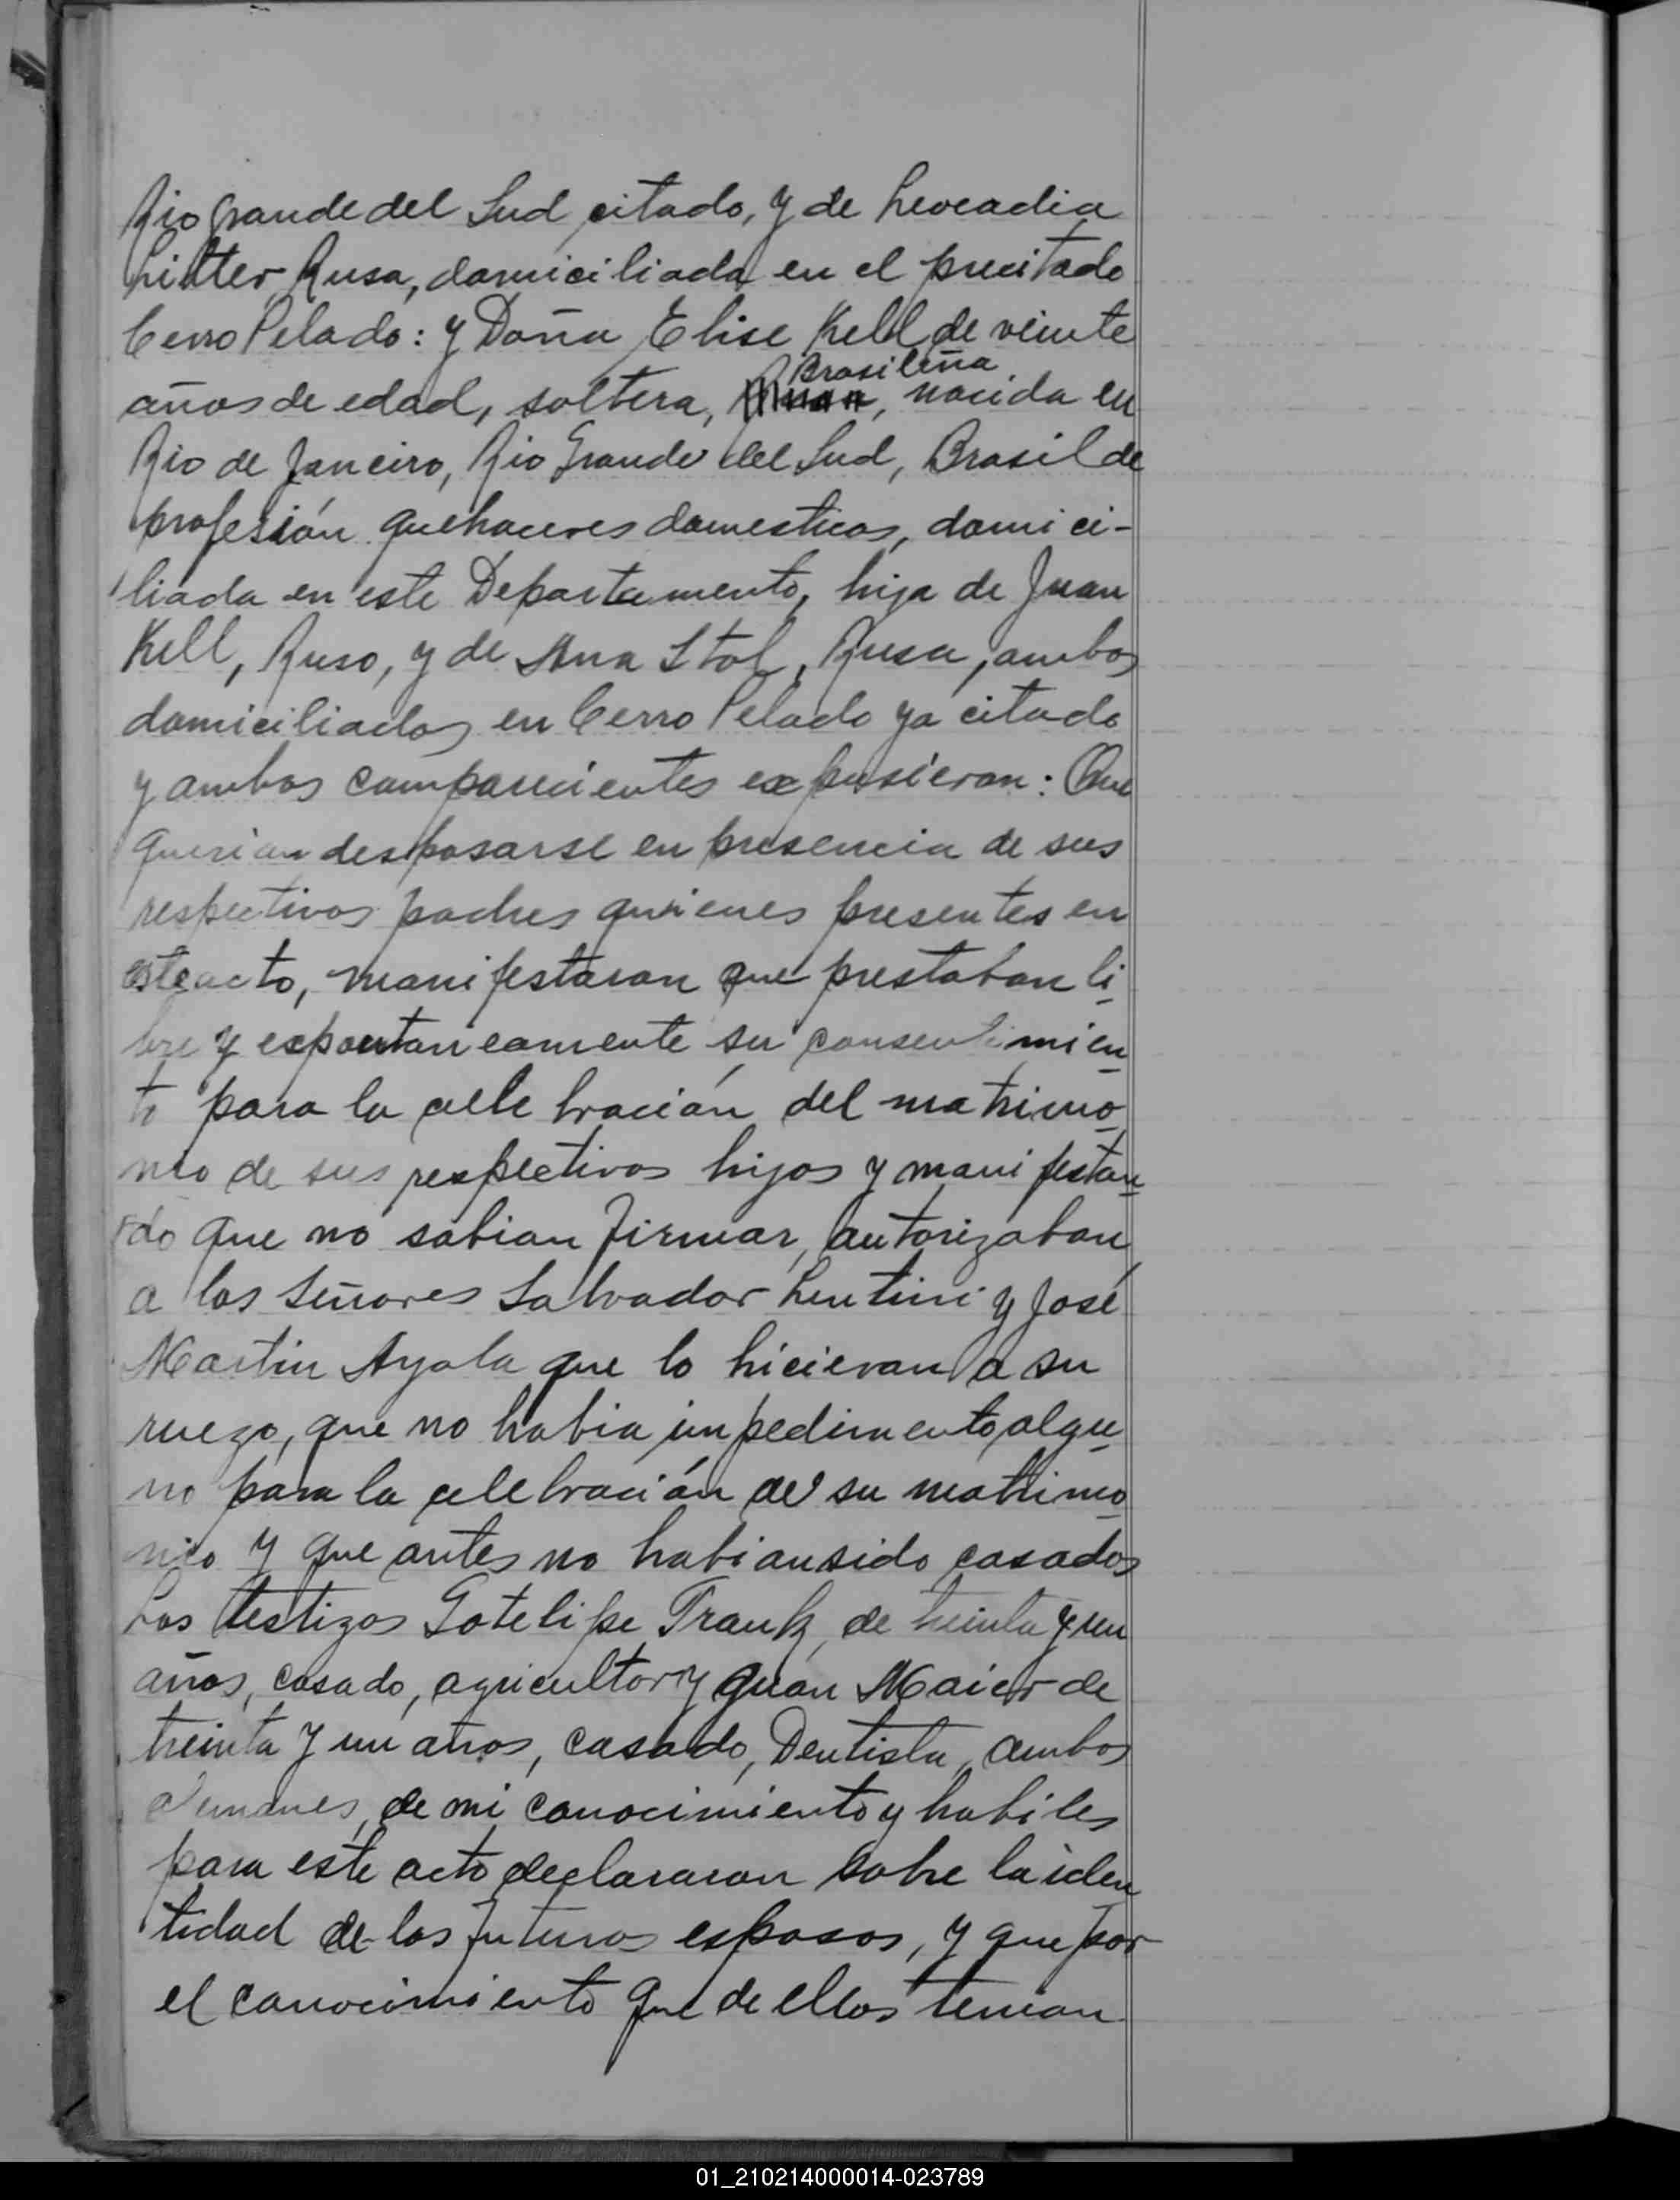 Rio Grande del Sud citado, y de Leocadia
Rusa, domiciliada en el precitado
Cerro Pelado: y Doña Elise Kell de veinte
Brasileña
años de edad, soltera, nacida en
Rio de Janeiro, Rio Grande del Sud, Brasil de
profesión quehaceres domesticos, domici-
liada en este Departamento, hija de Juan
Kell, Ruso, y de Ana Stol, Rusa, ambos
domiciliados en Cerro Pelado ya citado
y ambos comparecientes expusieron: Que
querian desposarse en presencia de sus
respectivos padres quienes presentes en
este acto, manifestaron que prestaban li
bre y expontaneamente su consentimien
to para la celebración del matrimo
nio de sus respectivos hijos y manifestan
do que no sabian firmar, autorizaban
a los Señores Salvador Lentini y José
Martin Ayala que lo hicieran a su
ruego, que no habia impedimento algu
no para la celebración de su matrimo
nio y que antes no habian sido casados
Los testigos Gotelipe Frank, de treinta y un
años, casado, agricultor y Maier de
treinta y un años, casado, Dentista, ambos
alemanes, de mi conocimiento y habiles
para este acto declararon sobre la iden
tidad de los futuros esposos, y que por
el conocimiento que de ellos tenian
01_210214000014-023789